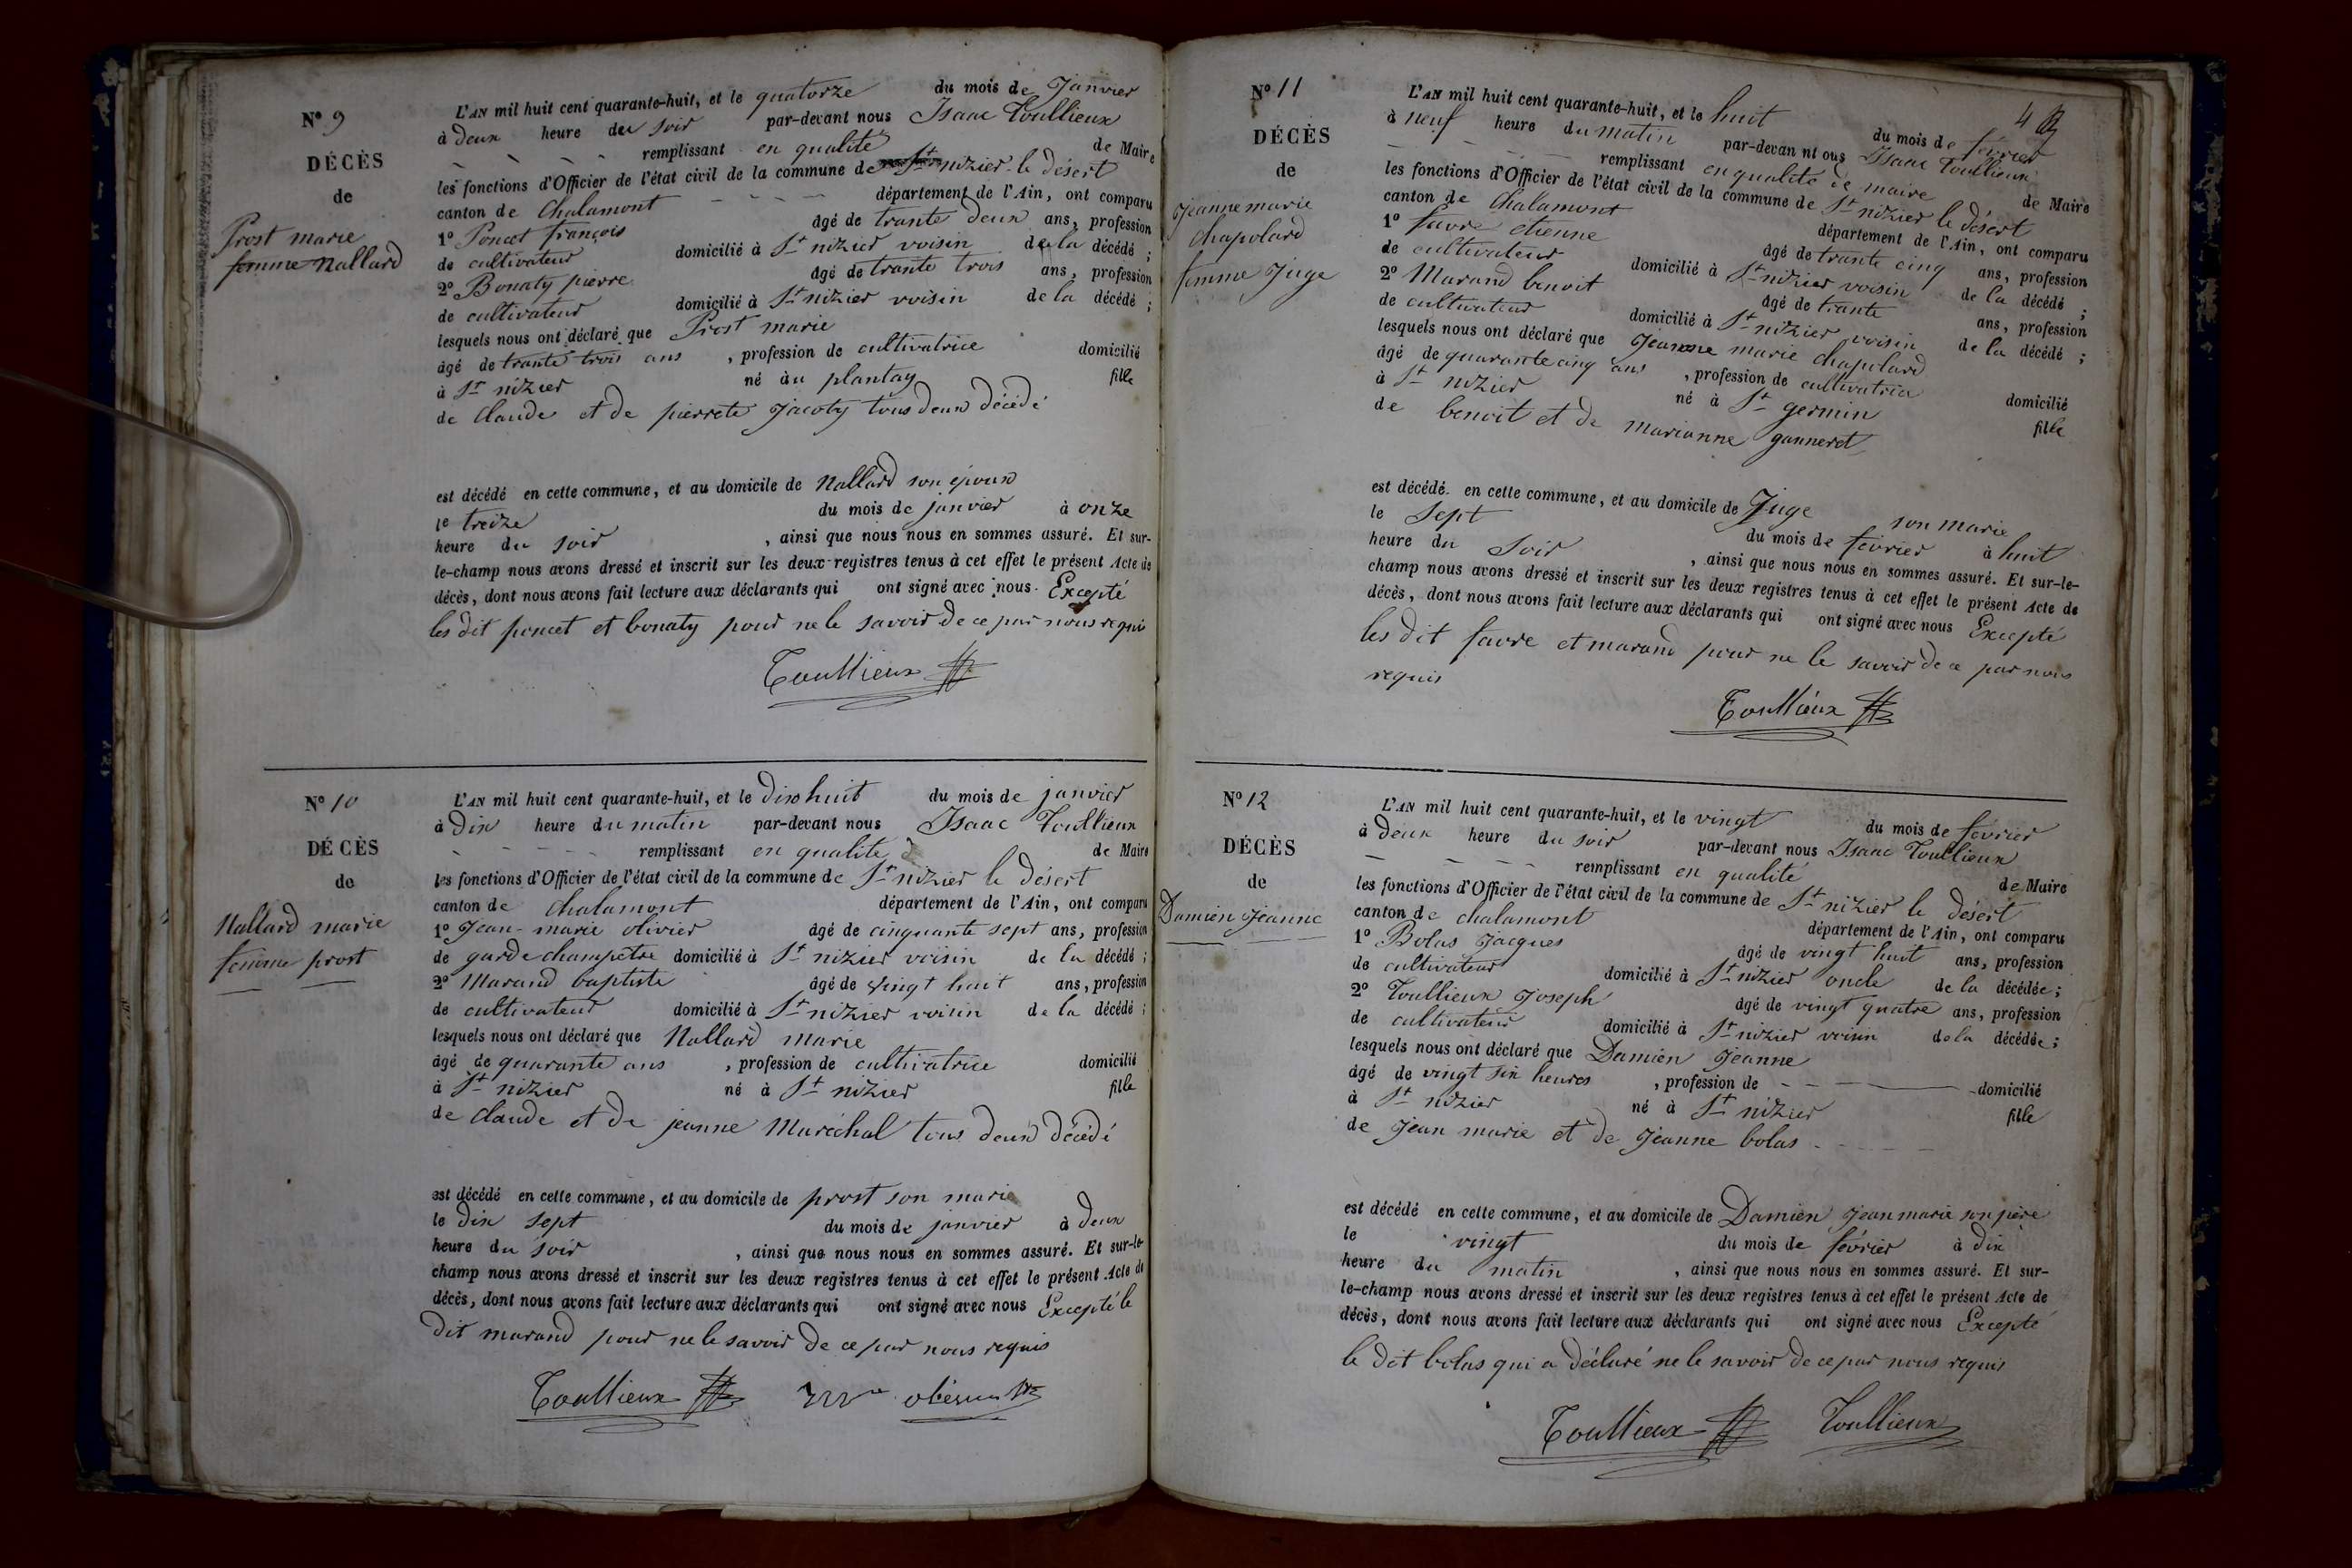 N° 9
DÉCÈS
de
Prost marie
femme Nallard
L'AN mil huit cent quarante-huit, et le quatorze du mois de Janvier
à deux heure du soir par-devant nous Isaac Toullieux
remplissant en qualité de Maire
les fonctions d'Officier de l'état civil de la commune de St nizier le désert
canton de Chalamont département de l'Ain, ont comparu
1° Poncet françois âgé de trante deux ans, profession
de cultivateur domicilié à St nizier voisin de la décédé ;
2° Bonaty pierre âgé de trante trois ans, profession
de cultivateur domicilié à St nizier voisin de la décédé ;
lesquels nous ont déclaré que Prost marie
âgé de trante trois ans , profession de cultivatrice domicilié
à St nizier né au plantay fille
de Claude et de pierrete Jacoty tous deux décédé
est décédé en cette commune, et au domicile de Nallard son époux
le treize du mois de janvier à onze
heure du soir , ainsi que nous nous en sommes assuré. Et sur-
le-champ nous avons dressé et inscrit sur les deux registres tenus à cet effet le présent Acte de
décès, dont nous avons fait lecture aux déclarants qui ont signé avec nous. Excepté
les dit poncet et bonaty pour ne le savoir de ce par nous requis
Toullieux
N° 10
DÉCÈS
de
Nallard marie
femme prost
L'AN mil huit cent quarante-huit, et le dix huit du mois de janvier
à dix heure du matin par-devant nous Isaac Toullieux
remplissant en qualité d de Maire
les fonctions d'Officier de l'état civil de la commune de St nizier le désert
canton de chalamont département de l'Ain, ont comparu
1° Jean-marie olivier âgé de cinquante sept ans, profession
de garde champetre domicilié à St nizier voisin de la décédé ;
2° Marand baptiste âgé de vingt huit ans, profession
de cultivateur domicilié à St nizier voisin de la décédé ;
lesquels nous ont déclaré que Nallard marie
âgé de quarante ans , profession de cultivatrice domicilié
à St nizier né à St nizier fille
de claude et de jeanne Maréchal tous deux décédé
est décédé en cette commune, et au domicile de prost son marie
le dix sept du mois de janvier à deux
heure du soir , ainsi que nous nous en sommes assuré. Et sur-le-
champ nous avons dressé et inscrit sur les deux registres tenus à cet effet le présent Acte de
décès, dont nous avons fait lecture aux déclarants qui ont signé avec nous Excepté le
dit marand pour ne le savoir de ce par nous requis
Toullieux
4
N° 11
DÉCÈS
de
Jeanne marie
chapolard
femme Juge
L'AN mil huit cent quarante-huit, et le huit du mois de fevrier
à neuf heure du matin par-devan nt ous Isaac Toullieux
remplissant en qualité de maire de Maire
les fonctions d'Officier de l'état civil de la commune de St nizier le désert
canton de Chalamont département de l'Ain, ont comparu
1° favre etienne âgé de trante cinq ans, profession
de cultivateur domicilié à St nizier voisin de la décédé ;
2° Marand benoit âgé de trante ans, profession
de cultivateur domicilié à St nizier voisin de la décédé ;
lesquels nous ont déclaré que Jeanne marie chapolard
âgé de quarante cinq ans , profession de cultivatrice domicilié
à St nizier né à St germin fille
de benoit et de marianne ganneret
est décédé en cette commune, et au domicile de Juge son marie
le Sept du mois de fevrier à huit
heure du Soir , ainsi que nous nous en sommes assuré. Et sur-le-
champ nous avons dressé et inscrit sur les deux registres tenus à cet effet le présent Acte de
décès, dont nous avons fait lecture aux déclarants qui ont signé avec nous Excepté
les dit favre et marand pour ne le savoir de ce par nous
requis
Toullieux
N° 12
DÉCÈS
de
Damien Jeanne
L'AN mil huit cent quarante-huit, et le vingt du mois de fevrier
à deux heure du soir par-devant nous Isaac Toullieux
remplissant en qualité de Maire
les fonctions d'Officier de l'état civil de la commune de St nizier le désert
canton de chalamont département de l'Ain, ont comparu
1° Bolas Jacques âgé de vingt huit ans, profession
de cultivateur domicilié à St nizier oncle de la décédée ;
2° Toullieux Joseph âgé de vingt quatre ans, profession
de cultivateur domicilié à St nizier voisin de la décédée ;
lesquels nous ont déclaré que Damien Jeanne
âgé de vingt six heures , profession de domicilié
à St nizier né à St nizier fille
de Jean marie et de Jeanne bolas
est décédé en cette commune, et au domicile de Damien Jean marie son père
le vingt du mois de février à dix
heure du matin , ainsi que nous nous en sommes assuré. Et sur-
le-champ nous avons dressé et inscrit sur les deux registres tenus à cet effet le présent Acte de
décès, dont nous avons fait lecture aux déclarants qui ont signé avec nous Excepté
le dit bolas qui a déclaré ne le savoir de ce par nous requis
Toullieux Toullieux